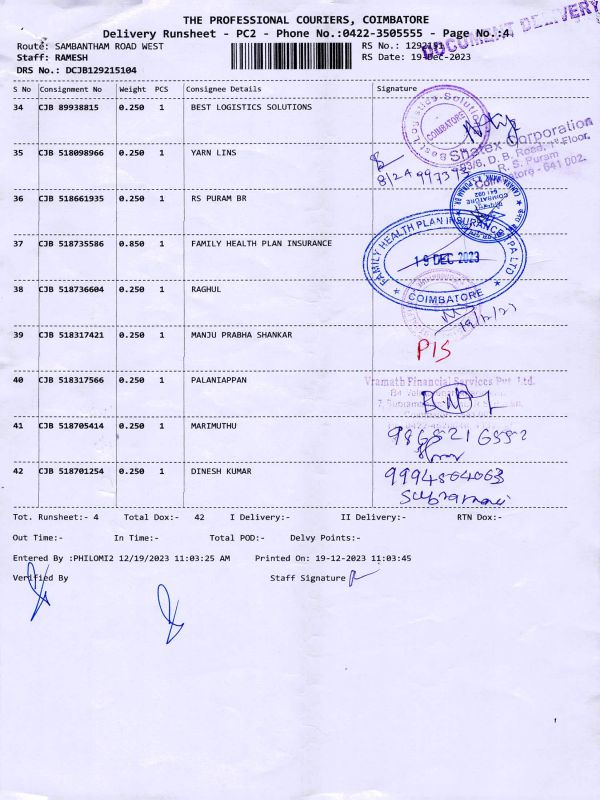 THE PROFESSIONAL COURIERS, COIMBATORE
Delivery Runsheet - PC2 - Phone No.:0422-3505555 - Page No.:4
DOCUMENT DELIVERY
Route: SAMBANTHAM ROAD WEST
Staff: RAMESH
DRS No.: DCJB129215104
RS No.: 1292151
RS Date: 19-Dec-2023
S No Consignment No Weight PCS Consignee Details Signature
34 CJB 89938815 0.250 1 BEST LOGISTICS SOLUTIONS
Best Logistics Solutions
COIMBATORE
35 CJB 518098966 0.250 1 YARN LINS
Shatex Corporation
93/6, D. B. Road, 1st Floor,
R. S. Puram
Coimbatore - 641 002.
36 CJB 518661935 0.250 1 RS PURAM BR
37 CJB 518735586 0.850 1 FAMILY HEALTH PLAN INSURANCE
FAMILY HEALTH PLAN INSURANCE TPA LTD
19 DEC 2023
COIMBATORE
38 CJB 518736604 0.250 1 RAGHUL
19/12/23
39 CJB 518317421 0.250 1 MANJU PRABHA SHANKAR
P1S
40 CJB 518317566 0.250 1 PALANIAPPAN
Vramath Financial Services Pvt. Ltd.
41 CJB 518705414 0.250 1 MARIMUTHU
9865216552
42 CJB 518701254 0.250 1 DINESH KUMAR
9994564063
Tot. Runsheet:- 4 Total Dox:- 42 I Delivery:- II Delivery:- RTN Dox:-
Out Time:- In Time:- Total POD:- Delvy Points:-
Entered By :PHILOMI2 12/19/2023 11:03:25 AM Printed On: 19-12-2023 11:03:45
Verified By Staff Signature